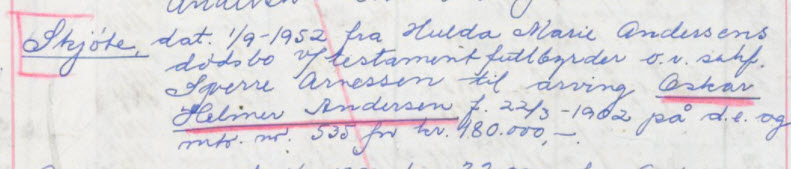 Skjöte, dat. 1/9-1952 fra Hulda Marie Andersens
dødsbo v/testamentfullbyrder o.r. sakf.
Sverre Arnessen til arving Oskar
Helmer Andersen f. 22/3-1902 på d.e. og
mtr. nr. 535 for kr. 480.000,-